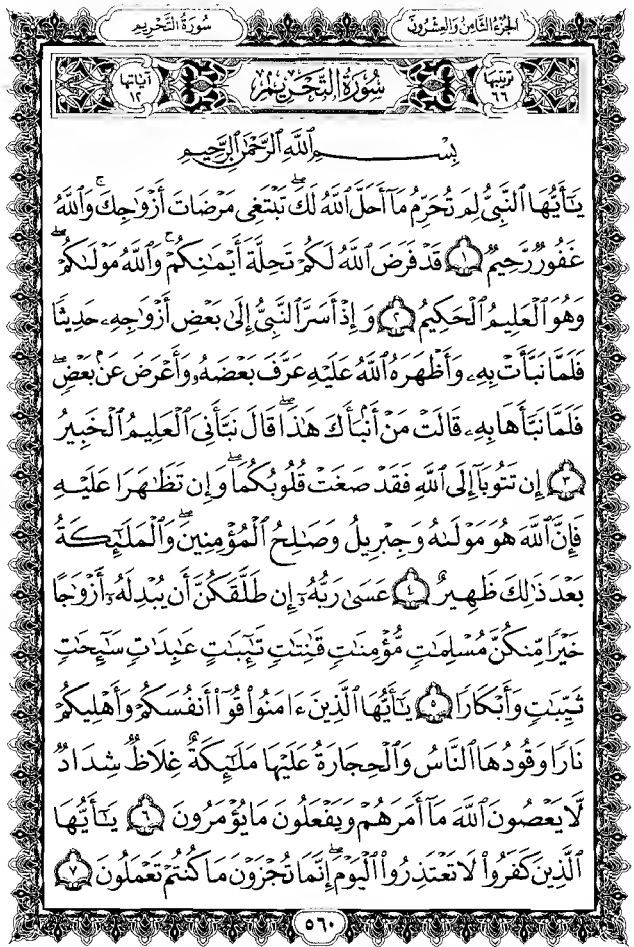 سُورَةُ التَّحْرِيمِ
الجُزْءُ الثَّامِنُ وَالعِشْرُونَ
ترتيبها ٦٦ سُورَةُ التَّحْرِيمِ آياتها ١٢
بِسْمِ ٱللَّهِ ٱلرَّحْمَٰنِ ٱلرَّحِيمِ
يَٰٓأَيُّهَا ٱلنَّبِىُّ لِمَ تُحَرِّمُ مَآ أَحَلَّ ٱللَّهُ لَكَۖ تَبْتَغِى مَرْضَاتَ أَزْوَٰجِكَۚ وَٱللَّهُ
غَفُورٌ رَّحِيمٌ ١ قَدْ فَرَضَ ٱللَّهُ لَكُمْ تَحِلَّةَ أَيْمَٰنِكُمْۚ وَٱللَّهُ مَوْلَىٰكُمْۖ
وَهُوَ ٱلْعَلِيمُ ٱلْحَكِيمُ ٢ وَإِذْ أَسَرَّ ٱلنَّبِىُّ إِلَىٰ بَعْضِ أَزْوَٰجِهِۦ حَدِيثًا
فَلَمَّا نَبَّأَتْ بِهِۦ وَأَظْهَرَهُ ٱللَّهُ عَلَيْهِ عَرَّفَ بَعْضَهُۥ وَأَعْرَضَ عَنۢ بَعْضٍۖ
فَلَمَّا نَبَّأَهَا بِهِۦ قَالَتْ مَنْ أَنۢبَأَكَ هَٰذَاۖ قَالَ نَبَّأَنِىَ ٱلْعَلِيمُ ٱلْخَبِيرُ
٣ إِن تَتُوبَآ إِلَى ٱللَّهِ فَقَدْ صَغَتْ قُلُوبُكُمَاۖ وَإِن تَظَٰهَرَا عَلَيْهِ
فَإِنَّ ٱللَّهَ هُوَ مَوْلَىٰهُ وَجِبْرِيلُ وَصَٰلِحُ ٱلْمُؤْمِنِينَۖ وَٱلْمَلَٰٓئِكَةُ
بَعْدَ ذَٰلِكَ ظَهِيرٌ ٤ عَسَىٰ رَبُّهُۥٓ إِن طَلَّقَكُنَّ أَن يُبْدِلَهُۥٓ أَزْوَٰجًا
خَيْرًا مِّنكُنَّ مُسْلِمَٰتٍ مُّؤْمِنَٰتٍ قَٰنِتَٰتٍ تَٰٓئِبَٰتٍ عَٰبِدَٰتٍ سَٰٓئِحَٰتٍ
ثَيِّبَٰتٍ وَأَبْكَارًا ٥ يَٰٓأَيُّهَا ٱلَّذِينَ ءَامَنُوا۟ قُوٓا۟ أَنفُسَكُمْ وَأَهْلِيكُمْ
نَارًا وَقُودُهَا ٱلنَّاسُ وَٱلْحِجَارَةُ عَلَيْهَا مَلَٰٓئِكَةٌ غِلَاظٌ شِدَادٌ
لَّا يَعْصُونَ ٱللَّهَ مَآ أَمَرَهُمْ وَيَفْعَلُونَ مَا يُؤْمَرُونَ ٦ يَٰٓأَيُّهَا
ٱلَّذِينَ كَفَرُوا۟ لَا تَعْتَذِرُوا۟ ٱلْيَوْمَۖ إِنَّمَا تُجْزَوْنَ مَا كُنتُمْ تَعْمَلُونَ ٧
٥٦٠